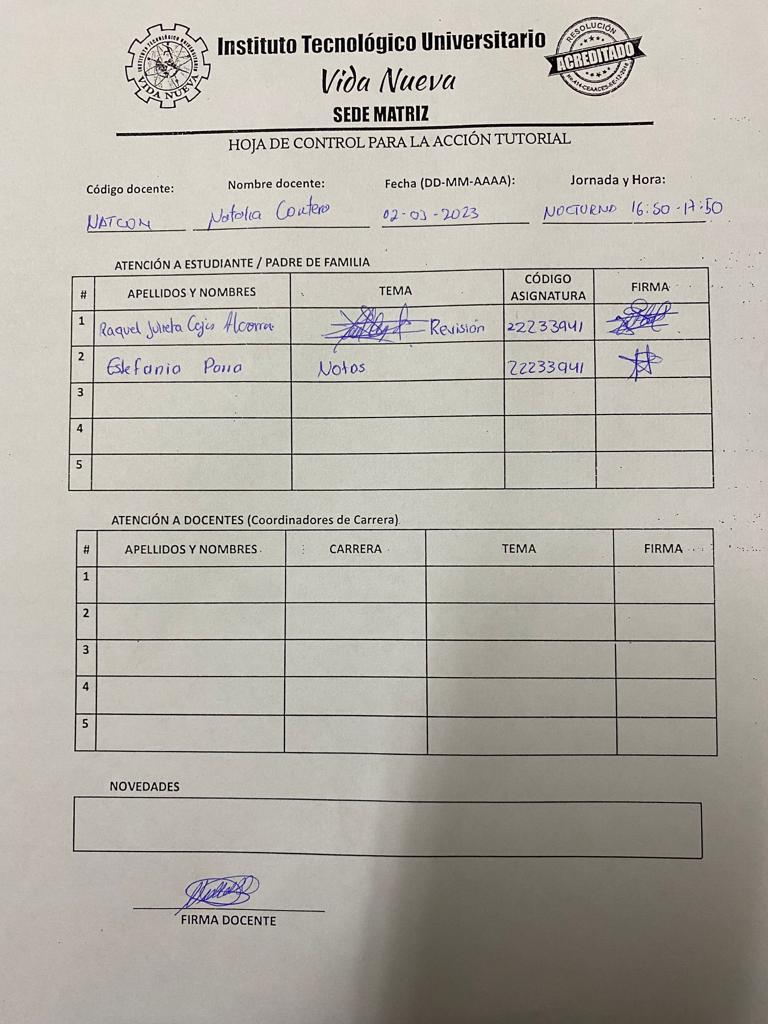 INSTITUTO TECNOLÓGICO UNIVERSITARIO
VIDA NUEVA
Instituto Tecnológico Universitario
Vida Nueva
SEDE MATRIZ
RESOLUCIÓN
ACREDITADO
HOJA DE CONTROL PARA LA ACCIÓN TUTORIAL
Código docente: Nombre docente: Fecha (DD-MM-AAAA): Jornada y Hora:
NATCON Natalia Contero 02-03-2023 NOCTURNO 16:50-17:50
ATENCIÓN A ESTUDIANTE / PADRE DE FAMILIA
# APELLIDOS Y NOMBRES TEMA CÓDIGO ASIGNATURA FIRMA
1 Raquel Julieta Revisión 22233941
2 Estefania Notas 22233941
3
4
5
ATENCIÓN A DOCENTES (Coordinadores de Carrera)
# APELLIDOS Y NOMBRES CARRERA TEMA FIRMA
1
2
3
4
5
NOVEDADES
FIRMA DOCENTE